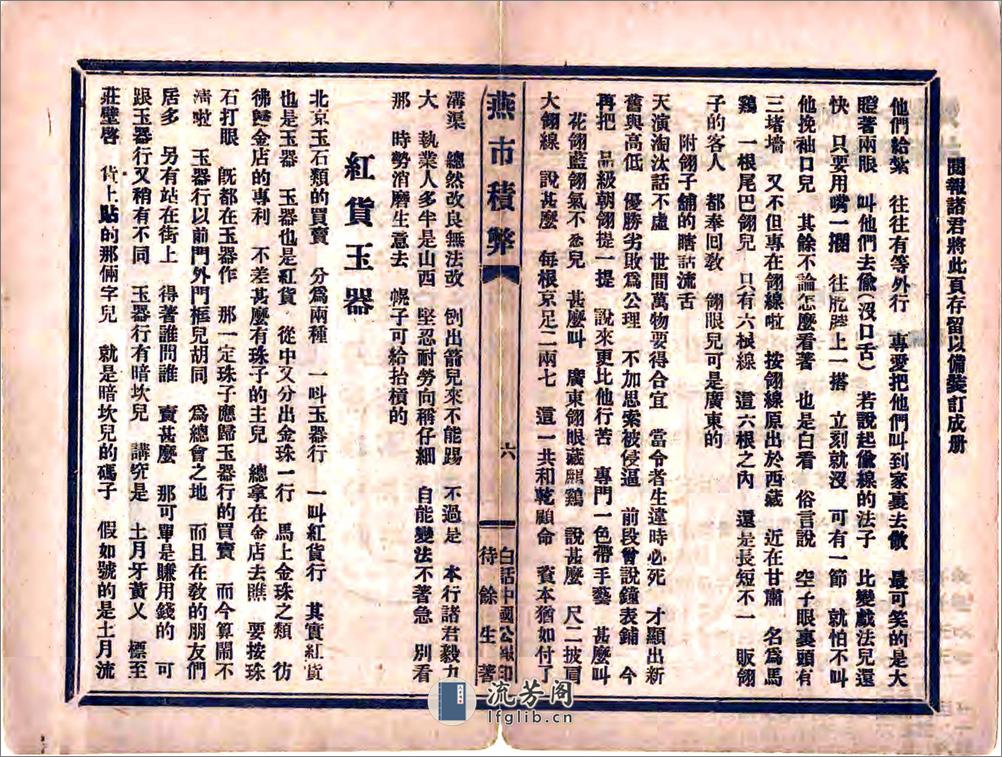 閱報諸君將此頁存留以備裝訂成册
他們給紮　往往有等外行　專愛把他們叫到家裏去做　最可笑的是大
瞪著兩眼　叫他們去偸（沒口舌）　若說起偸線的法子　比變戲法兒還
快　只要用嘴一擱　往肐膊上一搭　立刻就沒　可有一節　就怕不叫
他挽袖口兒　其餘不論怎麽看著　也是白看　俗言說　空子眼裏頭有
三堵墻　又不但專在翎線啦　按翎線原出於西藏　近在甘肅　名爲馬
鷄　一根尾巴翎兒　只有六根線　這六根之內　還是長短不一　販翎
子的客人　都奉回敎　翎眼兒可是廣東的
附翎子舖的瞎話流舌
天演淘汰話不虛　世間萬物要得合宜　當令者生違時必死　才顯出新
舊與高低　優勝劣敗爲公理　不加思索被侵逼　前段曾說鐘表鋪　今
再把　品級朝翎提一提　說來更比他行苦　專門一色帶手藝　甚麽叫
花翎藍翎氣不忿兒　甚麽叫　廣東翎眼藏鷳鷄　說甚麽　尺二披肩
大翎線　說甚麽　每根京足二兩七　這一共和乾顧命　資本猶如付了
燕市積弊
六
白話中國公報印
待餘生著
溝渠　總然改良無法改　倒出箭兒來不能踢　不過是　本行諸君毅力
大　執業人多半是山西　堅忍耐勞向稱仔細　自能變法不著急　別看
那　時勢消磨生意去　幌子可給抬槓的
紅貨玉器
北京玉石類的買賣　分爲兩種　一叫玉器行　一叫紅貨行　其實紅貨
也是玉器　玉器也是紅貨　從中又分出金珠一行　馬上金珠之類　彷
彿歸金店的專利　不差甚麽有珠子的主兒　總拿在金店去瞧　要按珠
石打眼　旣都在玉器作　那一定珠子應歸玉器行的買賣　而今算鬧不
淸啦　玉器行以前門外門框兒胡同　爲總會之地　而且在敎的朋友們
居多　另有站在街上　得著誰問誰　賣甚麽　那可單是賺用錢的　可
跟玉器行又稍有不同　玉器行有暗坎兒　講究是　土月牙黃又　標至
莊壁啓　貨上貼的那倆字兒　就是暗坎兒的碼子　假如號的是土月流
流芳阁
lfglib.cn